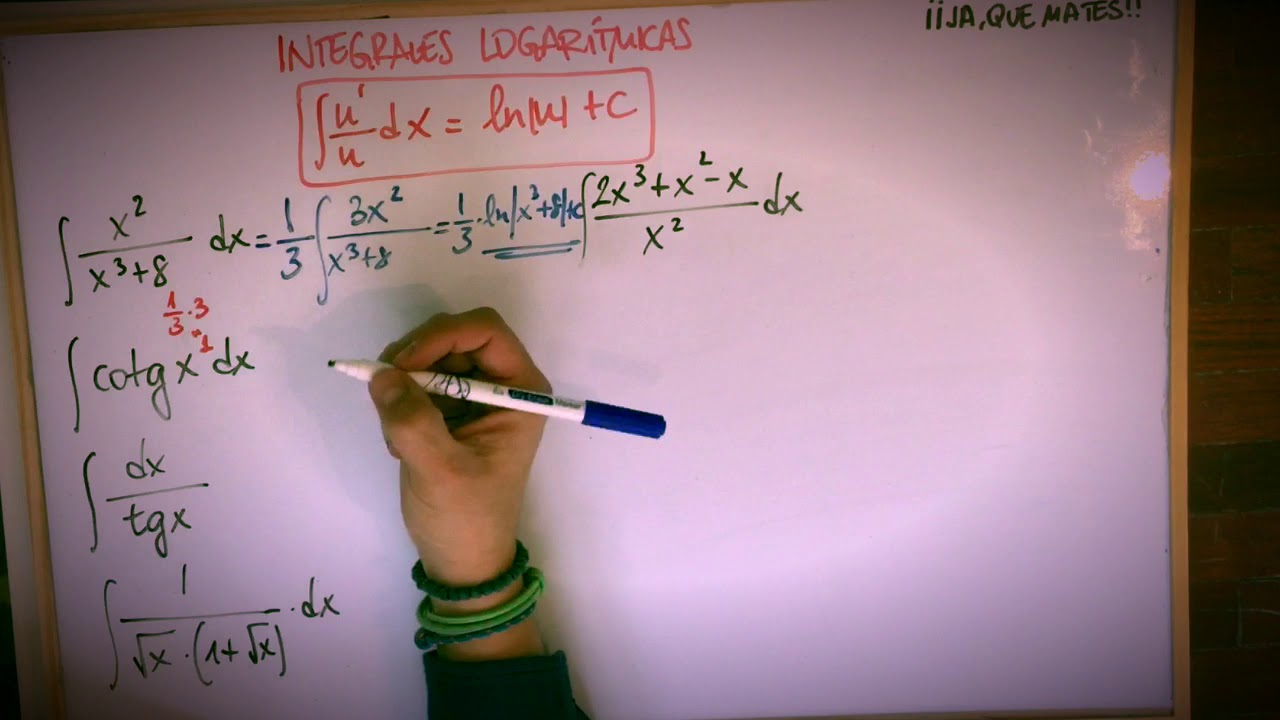 ¡¡JA, QUE MATES!!
INTEGRALES LOGARÍTMICAS
∫ u'/u dx = ln|u| + C
∫ x²/(x³+8) dx = 1/3 ∫ 3x²/(x³+8) = 1/3 · ln|x³+8|+c
∫ (2x³+x²-x)/x² dx
1/3 · 3 = 1
∫ cotg x dx
∫ dx/tg x
∫ 1/(√x · (1+√x)) · dx